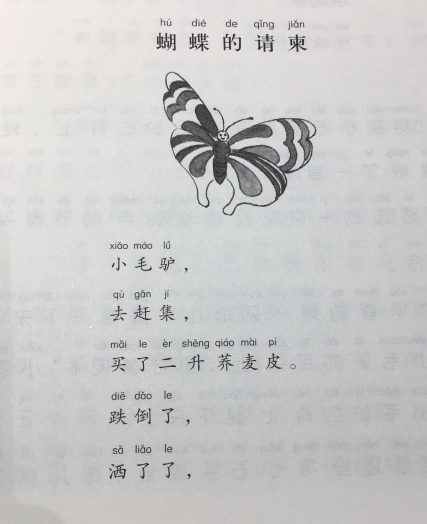 hú dié de qǐng jiǎn
蝴蝶的请柬
xiǎo máo lǘ
小毛驴，
qù gǎn jí
去赶集，
mǎi le èr shēng qiáo mài pí
买了二升荞麦皮。
diē dǎo le
跌倒了，
sǎ liǎo le
洒了了，